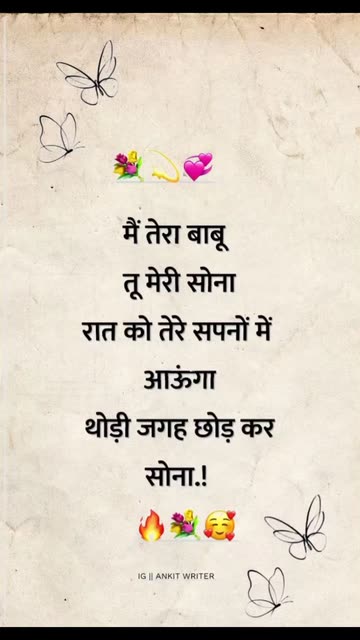 मैं तेरा बाबू
तू मेरी सोना
रात को तेरे सपनों में
आऊंगा
थोड़ी जगह छोड़ कर
सोना.!
IG || ANKIT WRITER